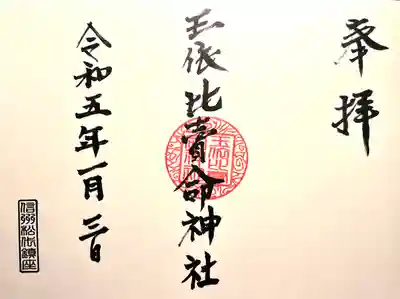 奉拝
玉依比賣命神社
令和五年一月三日
信州松代鎮座